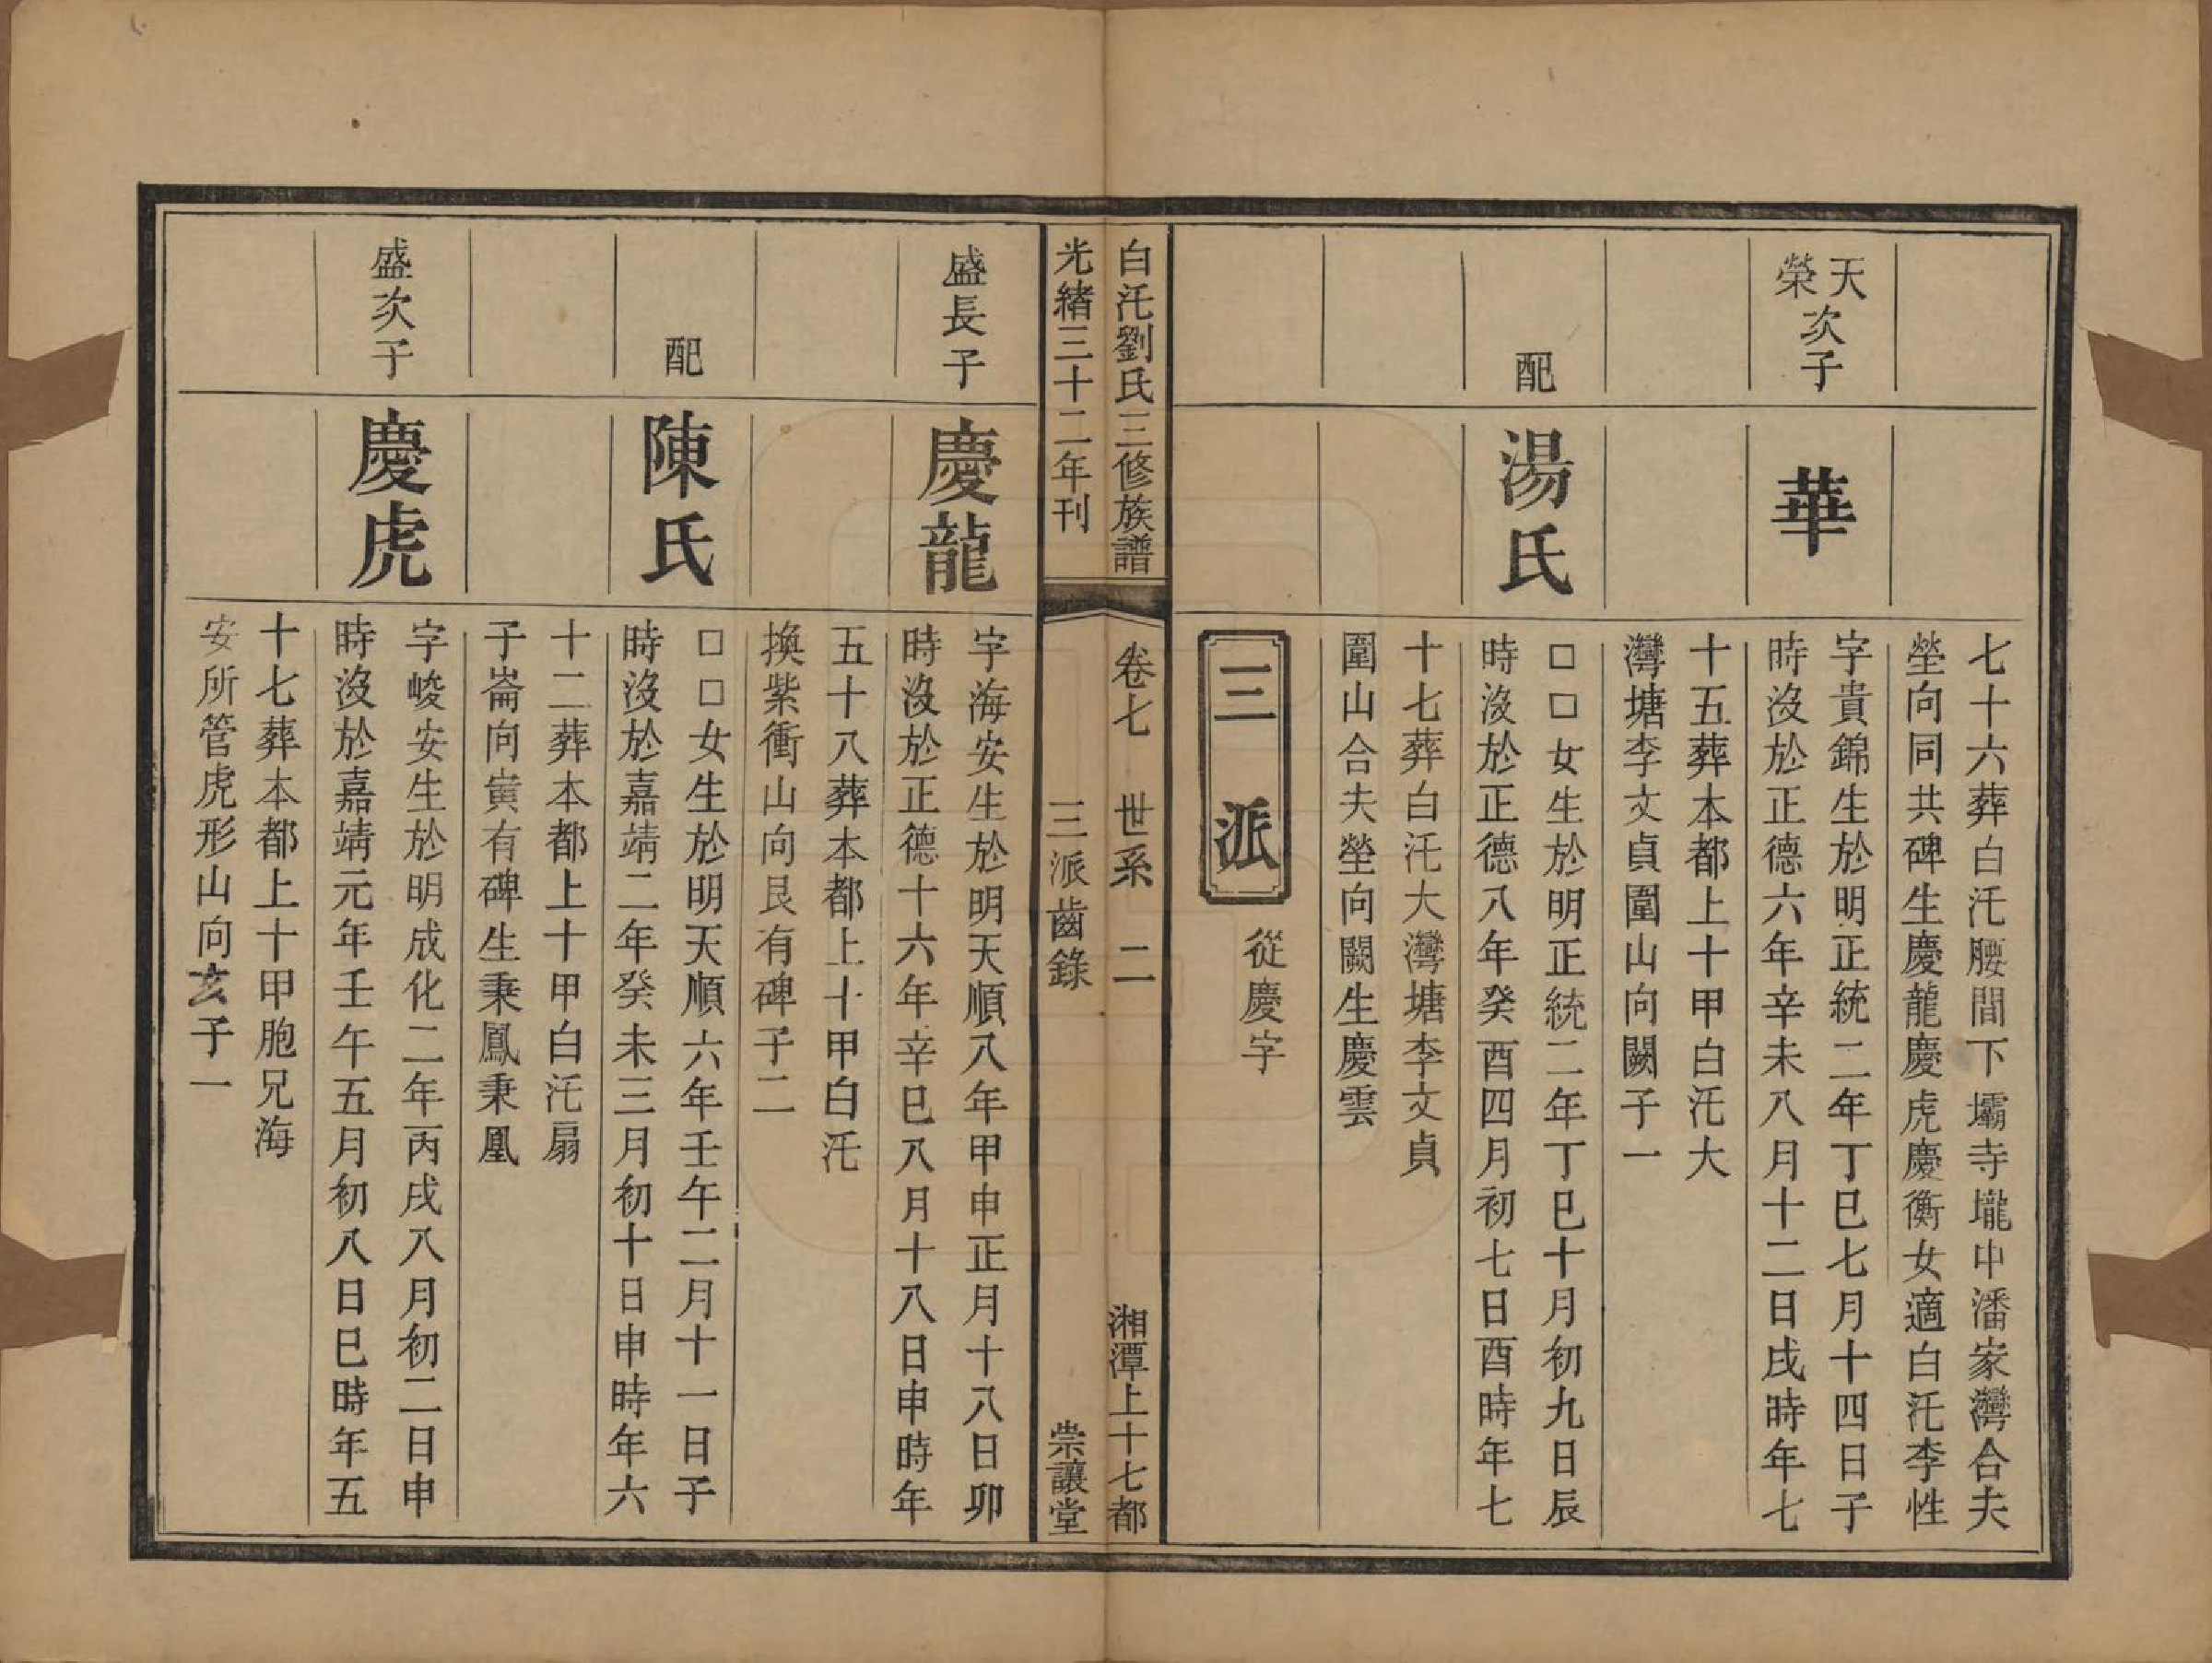 七十六葬白汑腰間下壩寺壠中潘家灣合夫
塋向同共碑生慶龍慶虎慶衡女適白汑李性
天榮次子
華
字貴錦生於明正統二年丁巳七月十四日子
時沒於正德六年辛未八月十二日戌時年七
十五葬本都上十甲白汑大
灣塘李文貞圍山向闕子一
配
湯氏
□□女生於明正統二年丁巳十月初九日辰
時沒於正德八年癸酉四月初七日酉時年七
十七葬白汑大灣塘李文貞
圍山合夫塋向闕生慶雲
三派
從慶字
白汑劉氏三修族譜
卷七 世系 二
湘潭上十七都
光緒三十二年刊
三派齒錄
崇讓堂
盛長子
慶龍
字海安生於明天順八年甲申正月十八日卯
時沒於正德十六年辛巳八月十八日申時年
五十八葬本都上十甲白汑
換紫衝山向艮有碑子二
配
陳氏
□□女生於明天順六年壬午二月十一日子
時沒於嘉靖二年癸未三月初十日申時年六
十二葬本都上十甲白汑扇
子崙向寅有碑生秉鳳秉凰
盛次子
慶虎
字峻安生於明成化二年丙戌八月初二日申
時沒於嘉靖元年壬午五月初八日巳時年五
十七葬本都上十甲胞兄海
安所管虎形山向玄子一